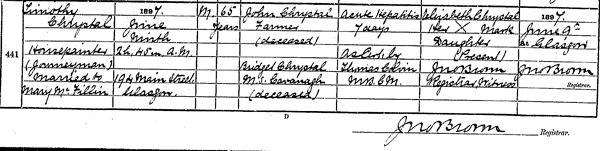 Timothy Chrystal
441
Housepainter
(Journeyman)
Married to
Mary McFillin
1897.
June
Ninth
2h. 45m. A.M.
194 Main Street
Glasgow.
M.
65
Years
John Chrystal
Farmer
(deceased)
Bridget Chrystal
M.S. Cavanagh
(deceased)
Acute Hepatitis
7 days
As Cert. by
Thomas Colvin
M.B. C.M.
Elizabeth Chrystal
Her X Mark
Daughter
(Present)
Jno Brown
Registrar, Witness
1897.
June 9th
At Glasgow
Jno Brown
Registrar.
D
Jno Brown Registrar.